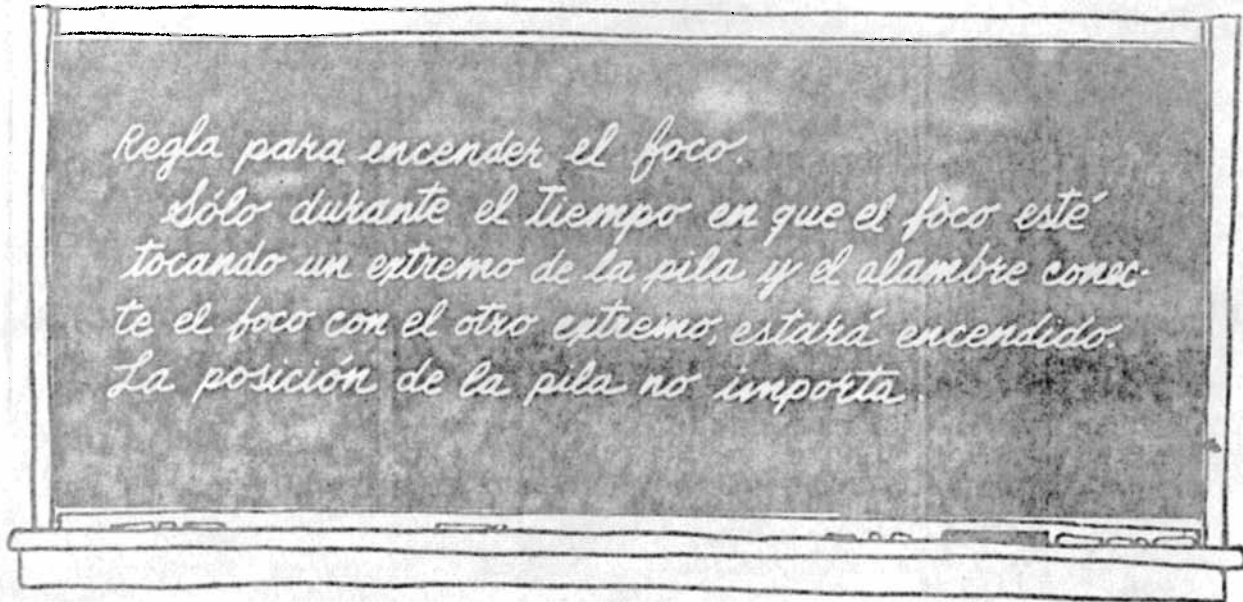 Regla para encender el foco.
Sólo durante el tiempo en que el foco esté
tocando un extremo de la pila y el alambre conec-
te el foco con el otro extremo, estará encendido.
La posición de la pila no importa.